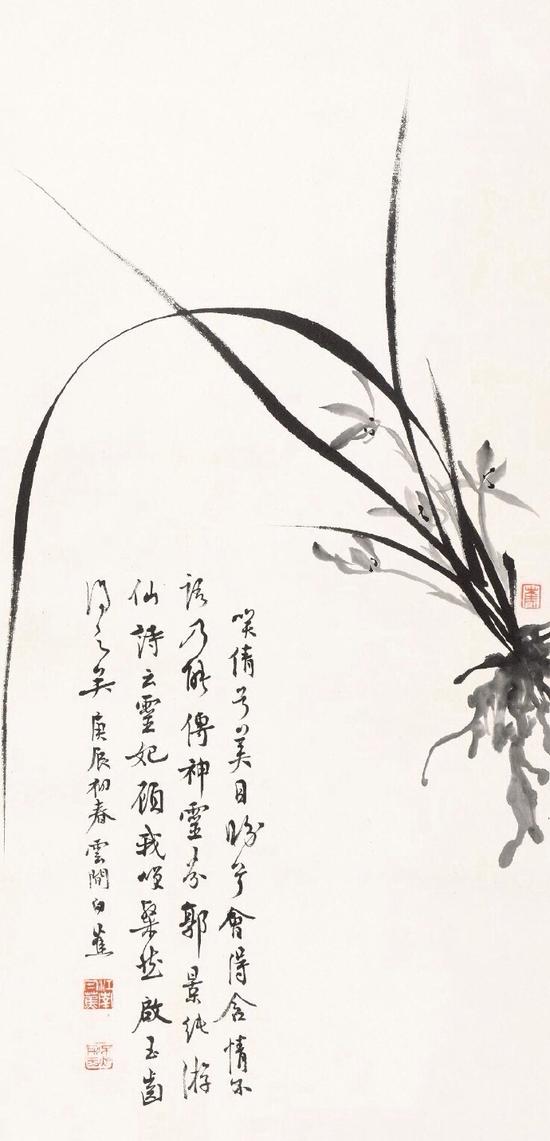 咲倩兮美目盼兮會得含情不
語乃能傳神靈芬郭景純游
仙詩云靈妃顧我咲粲然啟玉齒
得之矣庚辰初春雲間白蕉
江南白蕉